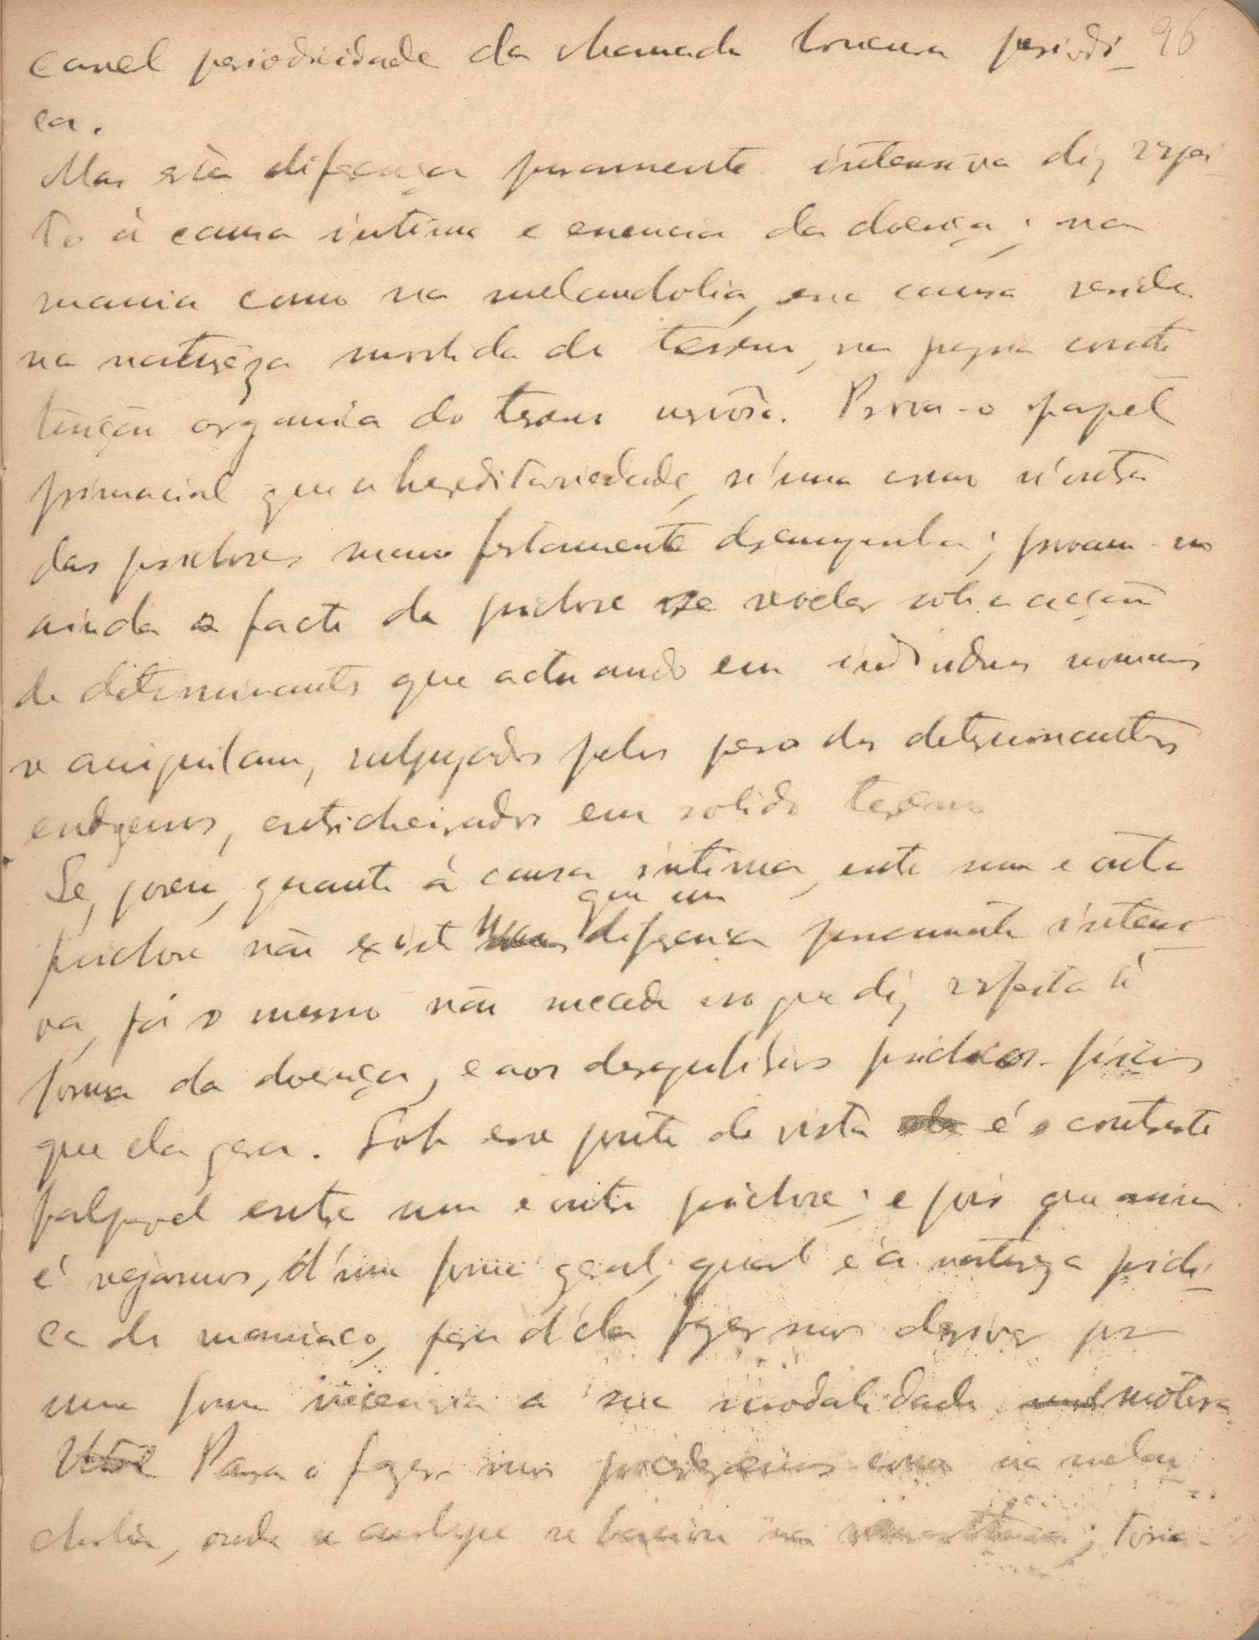 cavel periodicidade da chamada loucura periodi- 96
ca.
Mas esta diferença puramente intensiva diz respei-
to á causa intima e essencia da doença; na
mania como na melancholia, essa causa reside
na natureza morbida do terreno, na propria consti
tuição organica do tecido nervoso. Prova-o o papel
primacial que a hereditariedade, n'uma como n'outra
das psichoses manifestamente desempenha; provam-no
ainda o facto da psichose se revelar sob a acção
de determinantes que actuando em individuos normaes
se aniquilam, subjugados pelo peso dos determinantes
endogenos, entrincheirados em solido terreno
Se, porem, quanto á causa intima, entre uma e outra
que uma
psichose não existe mais diferença puramente intensi
va, já o mesmo não sucede no que diz respeito á
forma da doença, e aos desequilibrios psichicos-fisicos
que ela gera. Sob esse ponto de vista é o contraste
palpavel entre uma e outra psichose; e pois que assim
é vejamos, d'uma forma geral, qual é a natureza psichi-
ca do maniaco, para d'ela fazermos derivar por
uma forma a sua modalidade motora
Para o fazer nós procederemos como na melan
cholia, onde a se ; toma-